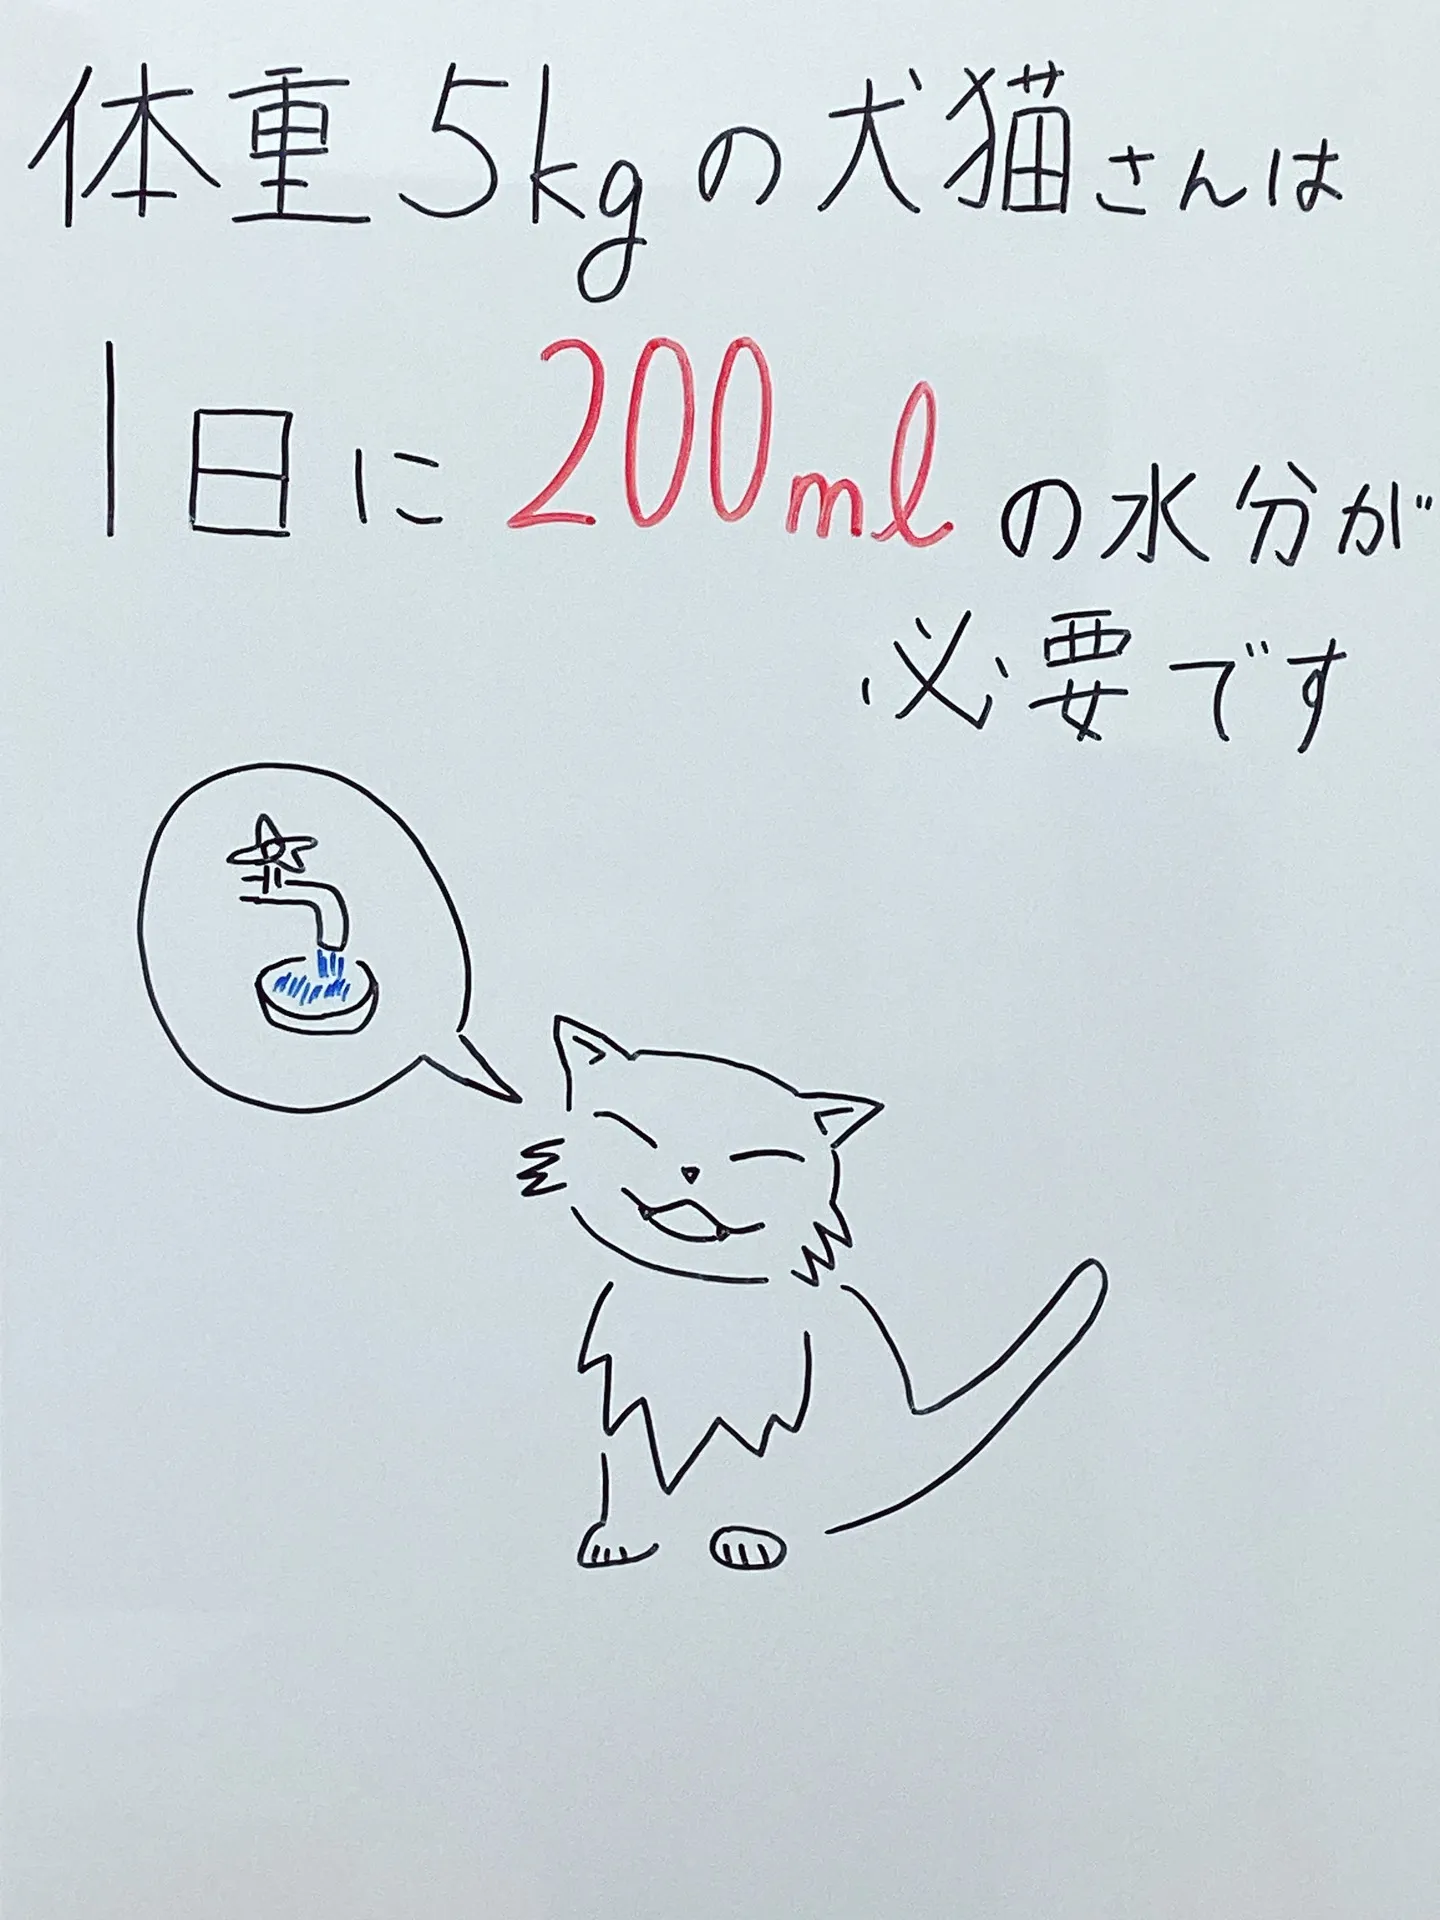 体重5kgの犬猫さんは
1日に200mlの水分が
必要です